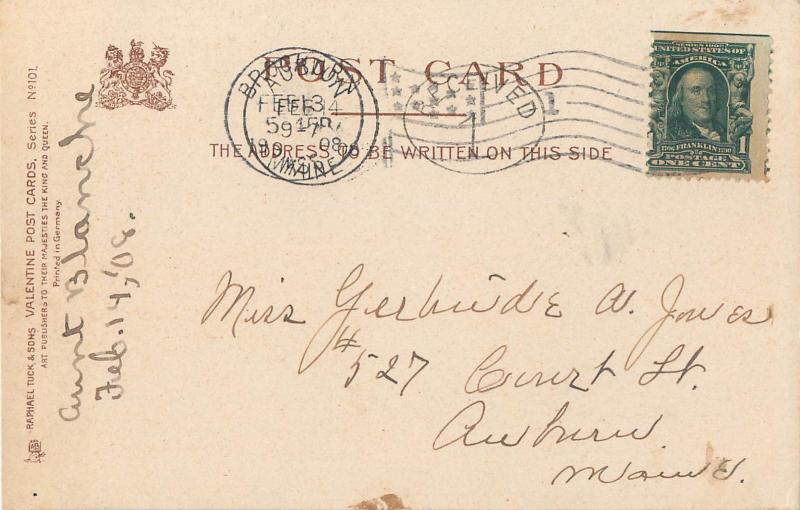 POST CARD
THE ADDRESS TO BE WRITTEN ON THIS SIDE
RECEIVED
1
SERIES 1902
UNITED STATES OF
AMERICA
1706 FRANKLIN 1790
POSTAGE
ONE CENT 1
RAPHAEL TUCK & SONS VALENTINE POST CARDS, Series Nº 101.
ART PUBLISHERS TO THEIR MAJESTIES THE KING AND QUEEN.
Printed in Germany.
Aunt Blanche
Feb. 14, '08.
Miss Gertrude A. Jones
# 527 Court St.
Auburn
Maine.
AUBURN
FEB 14
MAINE